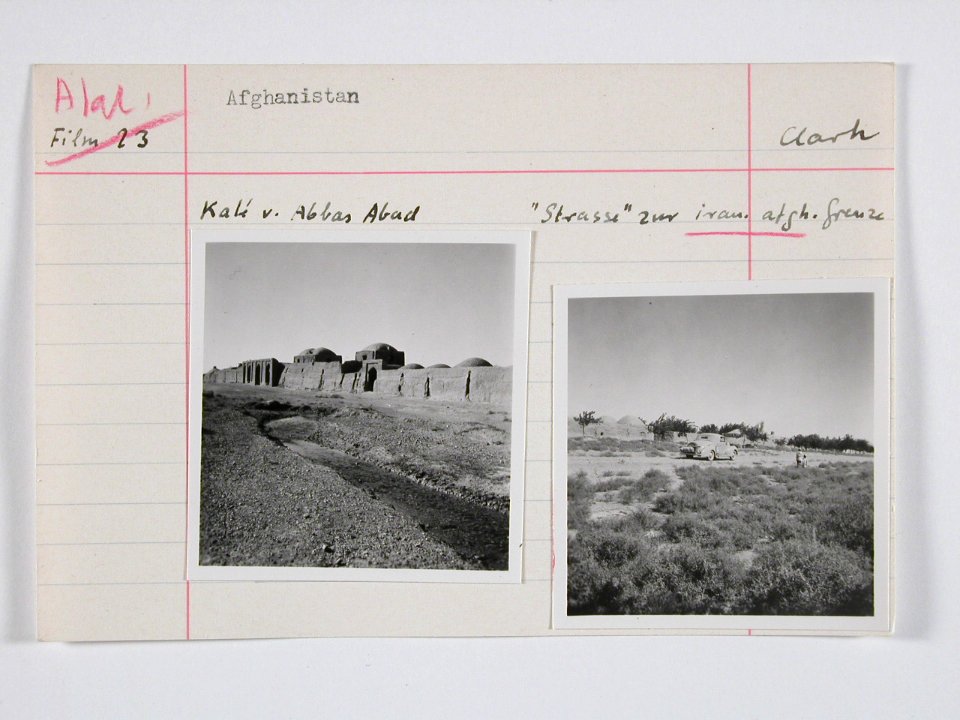 Afghanistan
Film 23
Clark
Kalé v. Abbas Abad
"Strasse" zur iran. afgh. Grenze